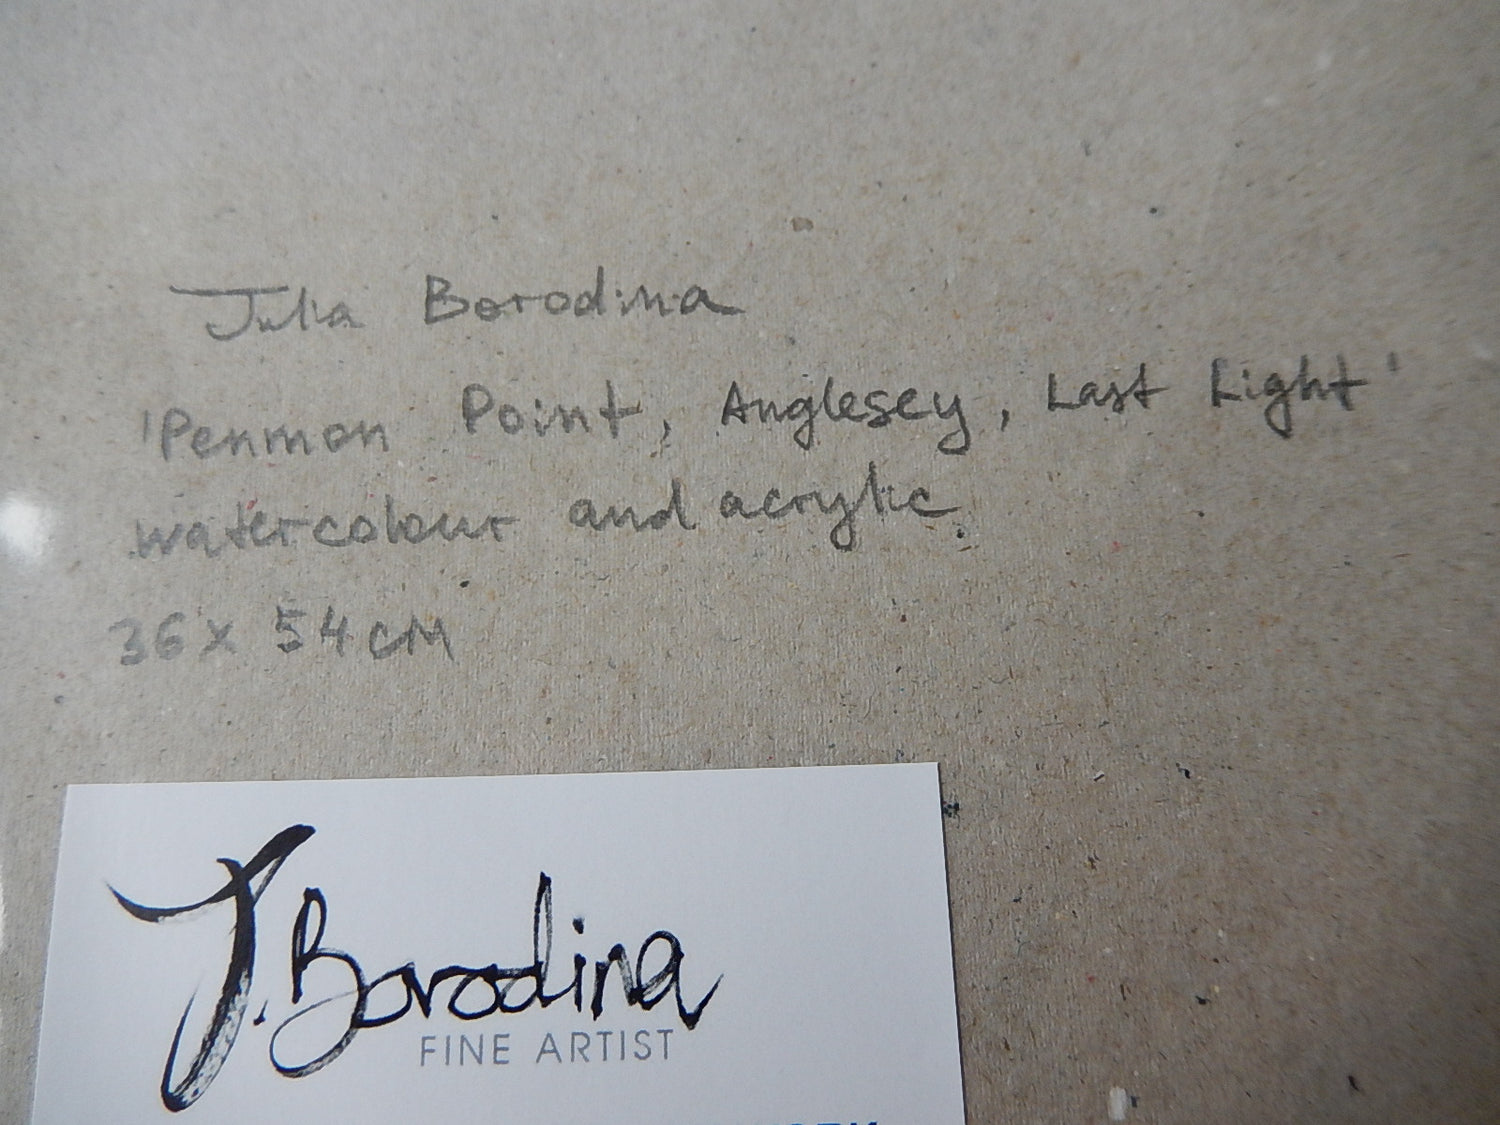 Julia Borodina
'Penmon Point, Anglesey, Last Light'
watercolour and acrylic.
36 x 54 cm
J. Borodina
FINE ARTIST